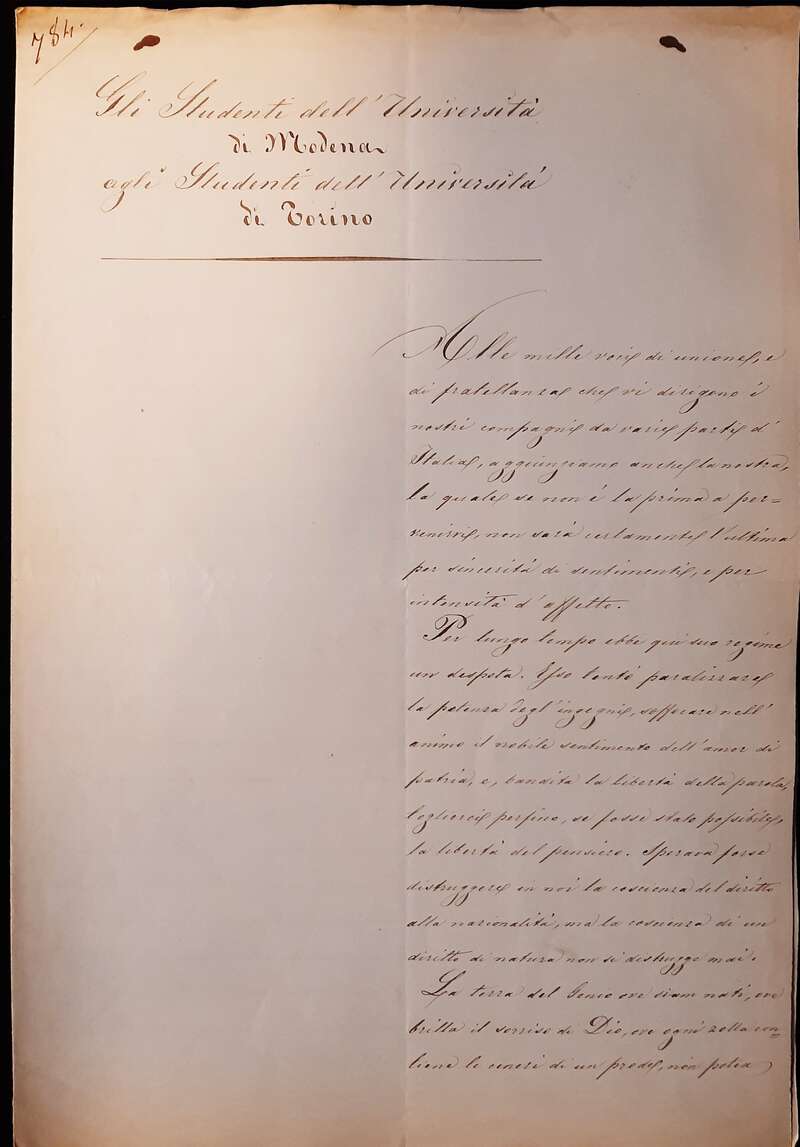 784.
Gli Studenti dell'Università
di Modena
agli Studenti dell'Università
di Torino
Alle mille voci di unione, e
di fratellanza che vi dirigono i
nostri compagni da varie parti d'
Italia, aggiunziamo anche la nostra,
la quale se non è la prima a per=
venirvi, non sarà certamente l'ultima
per sincerità di sentimenti, e per
intensità d'affetto.
Per lungo tempo ebbe qui suo regime
un despota. Esso tentò paralizzare
la potenza degl'ingegni, soffocare nell'
animo il nobile sentimento dell'amor di
patria, e, bandita la libertà della parola,
toglierci perfino, se fosse stato possibile,
la libertà del pensiero. Sperava forse
distruggere in noi la coscienza del diritto
alla nazionalità, ma la coscienza di un
diritto di natura non si distrugge mai.
La terra del Genio ove siam nati, ove
brilla il sorriso di Dio, ove ogni zolla con=
tiene le ceneri di un prode, non potea